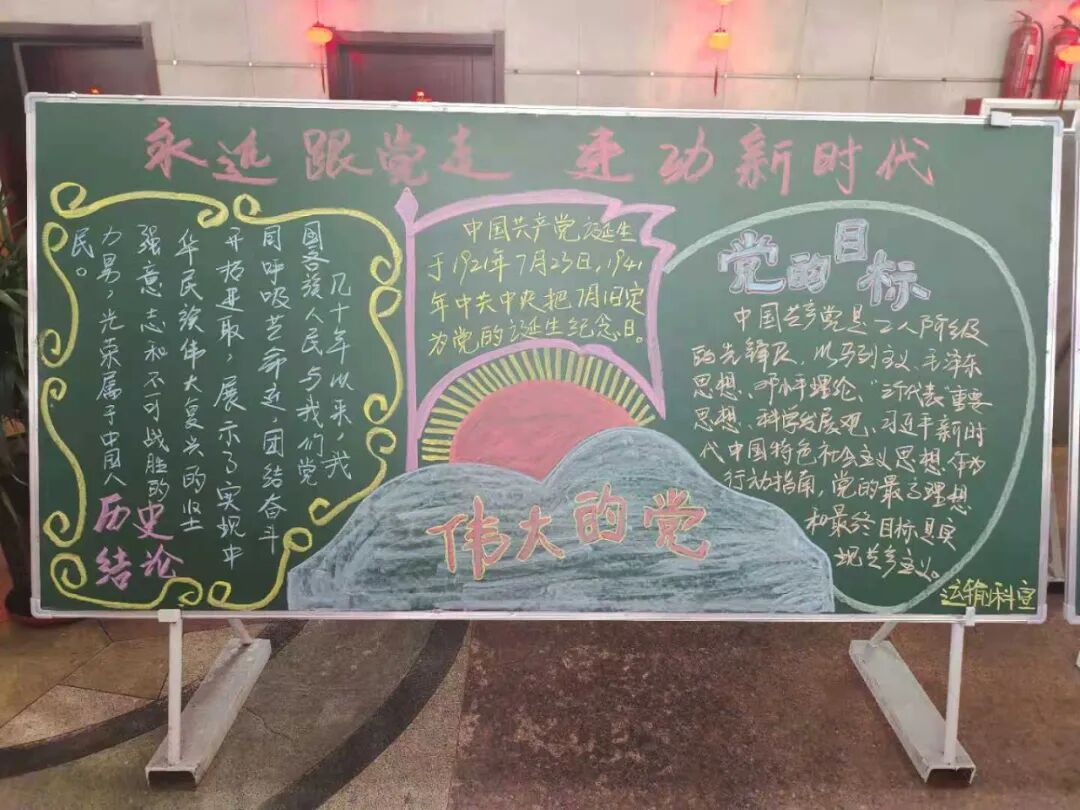 永远跟党走 建功新时代
几十年以来，我
国各族人民与我们党
同呼吸共命运，团结奋斗
开拓进取，展示了实现中
华民族伟大复兴的坚
强意志和不可战胜的
力量，光荣属于中国人
民。
历史
结论
中国共产党诞生
于1921年7月23日，1941
年中共中央把7月1日定
为党的诞生纪念日。
伟大的党
党的目标
中国共产党是工人阶级
的先锋队，以马列主义、毛泽东
思想、邓小平理论、“三个代表”重要
思想、科学发展观、习近平新时
代中国特色社会主义思想，作为
行动指南，党的最高理想
和最终目标是实
现共产主义。
运输科宣